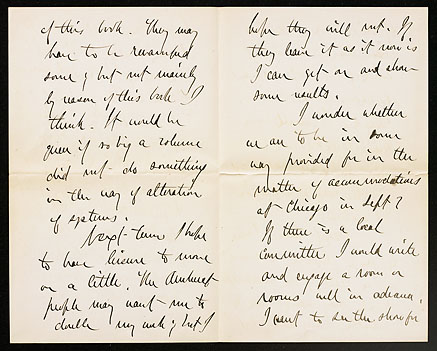 of this book. They may
have to be revamped
some, but not mainly
by reason of this book I
think. It would be
queer if so big a volume
did not do something
in the way of alteration
of systems.
Next term I hope
to have leisure to move
on a little. The Amherst
people may want me to
double my work, but I
hope they will not. If
they leave it as it now is
I can get on and show
some results.
I wonder whether
we are to be in some
way provided for in the
matter of accommodations
at Chicago in Sept?
If there is a local
committee I would write
and engage a room or
rooms well in advance.
I want to see the show for